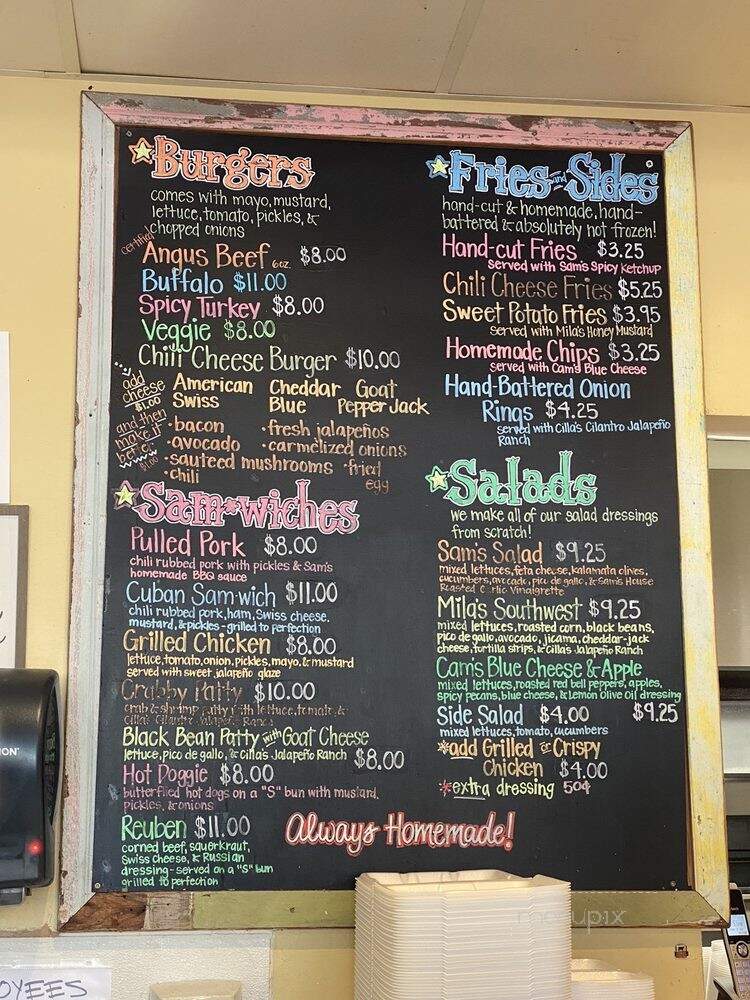 Burgers
comes with mayo, mustard,
lettuce, tomato, pickles, &
chopped onions
certified
Angus Beef 6oz. $8.00
Buffalo $11.00
Spicy Turkey $8.00
Veggie $8.00
Chili Cheese Burger $10.00
add cheese $1.00
American Cheddar Goat
Swiss Blue Pepper Jack
and then make it better $1.00
·bacon ·fresh jalapeños
·avocado ·carmelized onions
·sauteed mushrooms ·fried egg
·chili
Sam*wiches
Pulled Pork $8.00
chili rubbed pork with pickles & Sam's
homemade BBQ sauce
Cuban Sam-wich $11.00
chili rubbed pork, ham, Swiss cheese,
mustard, & pickles - grilled to perfection
Grilled Chicken $8.00
lettuce, tomato, onion, pickles, mayo, & mustard
served with sweet jalapeño glaze
Crabby Patty $10.00
crab & shrimp patty with lettuce, tomato, &
Cilla's Cilantro Jalapeño Ranch
Black Bean Patty with Goat Cheese
lettuce, pico de gallo, & Cilla's Jalapeño Ranch $8.00
Hot Doggie $8.00
butterflied hot dogs on a "S" bun with mustard,
pickles, & onions
Reuben $11.00
corned beef, sauerkraut,
Swiss cheese, & Russian
dressing - served on a "S" bun
grilled to perfection
Fries and Sides
hand-cut & homemade, hand-
battered & absolutely not frozen!
Hand-cut Fries $3.25
served with Sam's Spicy Ketchup
Chili Cheese Fries $5.25
Sweet Potato Fries $3.95
served with Mila's Honey Mustard
Homemade Chips $3.25
served with Cam's Blue Cheese
Hand-Battered Onion
Rings $4.25
served with Cilla's Cilantro Jalapeño
Ranch
Salads
we make all of our salad dressings
from scratch!
Sam's Salad $9.25
mixed lettuces, feta cheese, kalamata olives,
cucumbers, avocado, pico de gallo, & Sam's House
Roasted Garlic Vinaigrette
Mila's Southwest $9.25
mixed lettuces, roasted corn, black beans,
pico de gallo, avocado, jicama, cheddar-jack
cheese, tortilla strips, & Cilla's Jalapeño Ranch
Cam's Blue Cheese & Apple
mixed lettuces, roasted red bell peppers, apples,
spicy pecans, blue cheese, & Lemon Olive Oil dressing
$9.25
Side Salad $4.00
mixed lettuces, tomato, cucumbers
*add Grilled or Crispy
Chicken $4.00
*extra dressing 50¢
Always Homemade!
OYEES